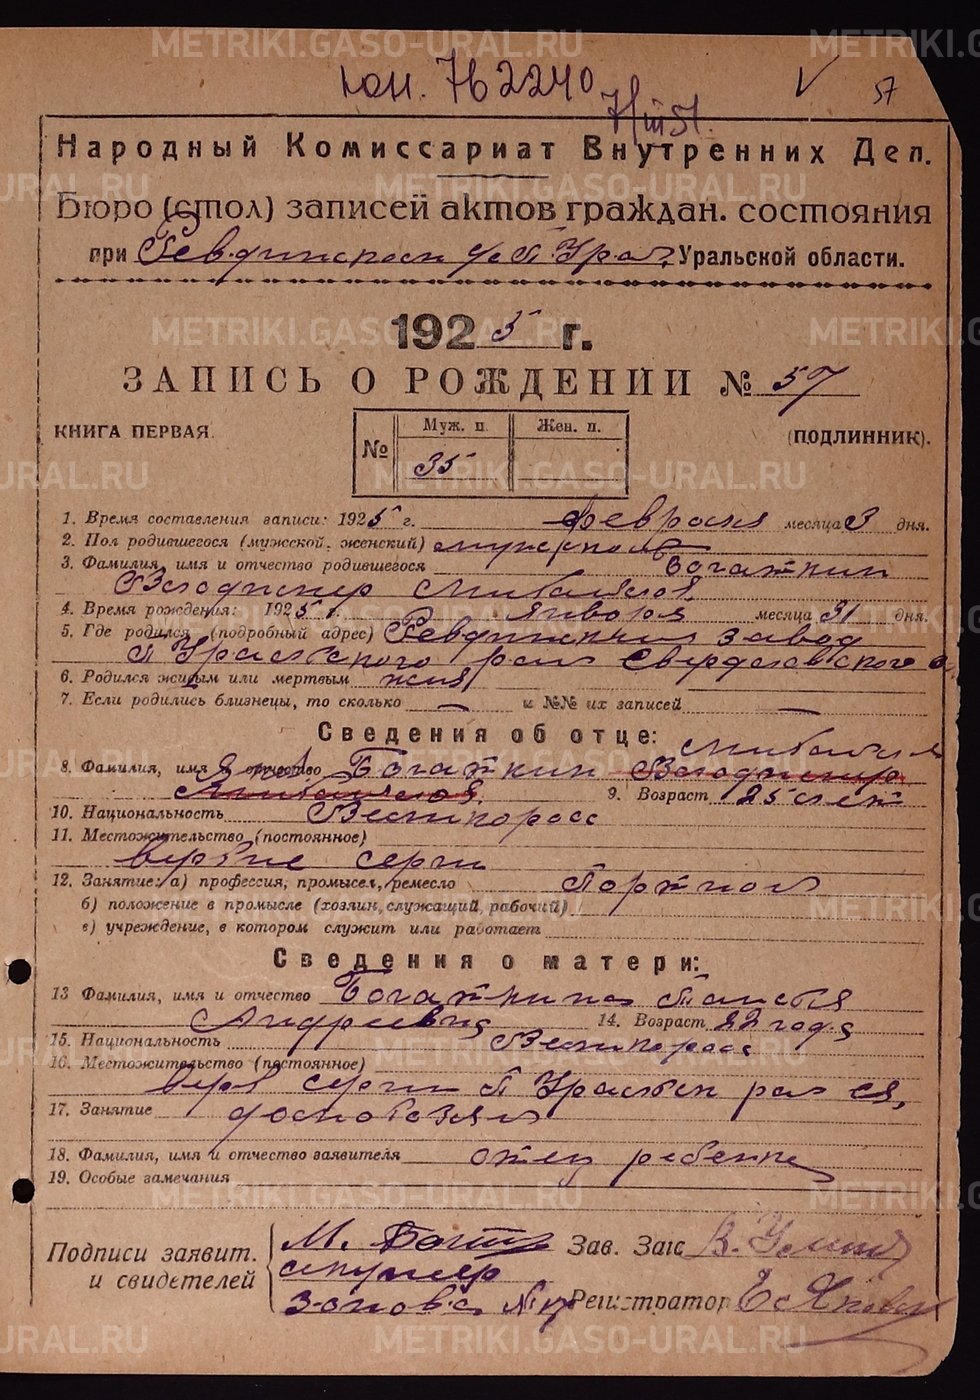 METRIKI.GASO-URAL.RU
Юн. 762240
57
7/III 51.
Народный Комиссариат Внутренних Дел.
Бюро (стол) записей актов граждан. состояния
при Ревдинском Уральской области.
1925 г.
ЗАПИСЬ О РОЖДЕНИИ № 57
КНИГА ПЕРВАЯ. (ПОДЛИННИК).
№ Муж. п. Жен. п.
35
1. Время составления записи: 1925 г. февраля месяца 3 дня.
2. Пол родившегося (мужской, женский) мужской
3. Фамилия, имя и отчество родившегося Богаткин
Владимир Михайлов.
4. Время рождения: 1925 г. января месяца 31 дня.
5. Где родился (подробный адрес) Ревдинский завод
П Уральского рай Свердловского о
6. Родился живым или мертвым жив
7. Если родились близнецы, то сколько — и №№ их записей —
Сведения об отце:
Михаил
8. Фамилия, имя и отчество Богаткин Владимир
Михайлов. 9. Возраст 25 лет
10. Национальность Великоросс
11. Местожительство (постоянное)
серги
12. Занятие: а) профессия, промысел, ремесло Портной
б) положение в промысле (хозяин, служащий, рабочий)
в) учреждение, в котором служит или работает
Сведения о матери:
13 Фамилия, имя и отчество Богаткина Таисья
Андреевна 14. Возраст 22 года
15. Национальность Великоросс
16. Местожительство (постоянное)
верх серги П Уральск рай
17. Занятие домохозяй
18. Фамилия, имя и отчество заявителя отец ребенка
19. Особые замечания
Подписи заявит. и свидетелей
М. Зав. Загс
Регистратор